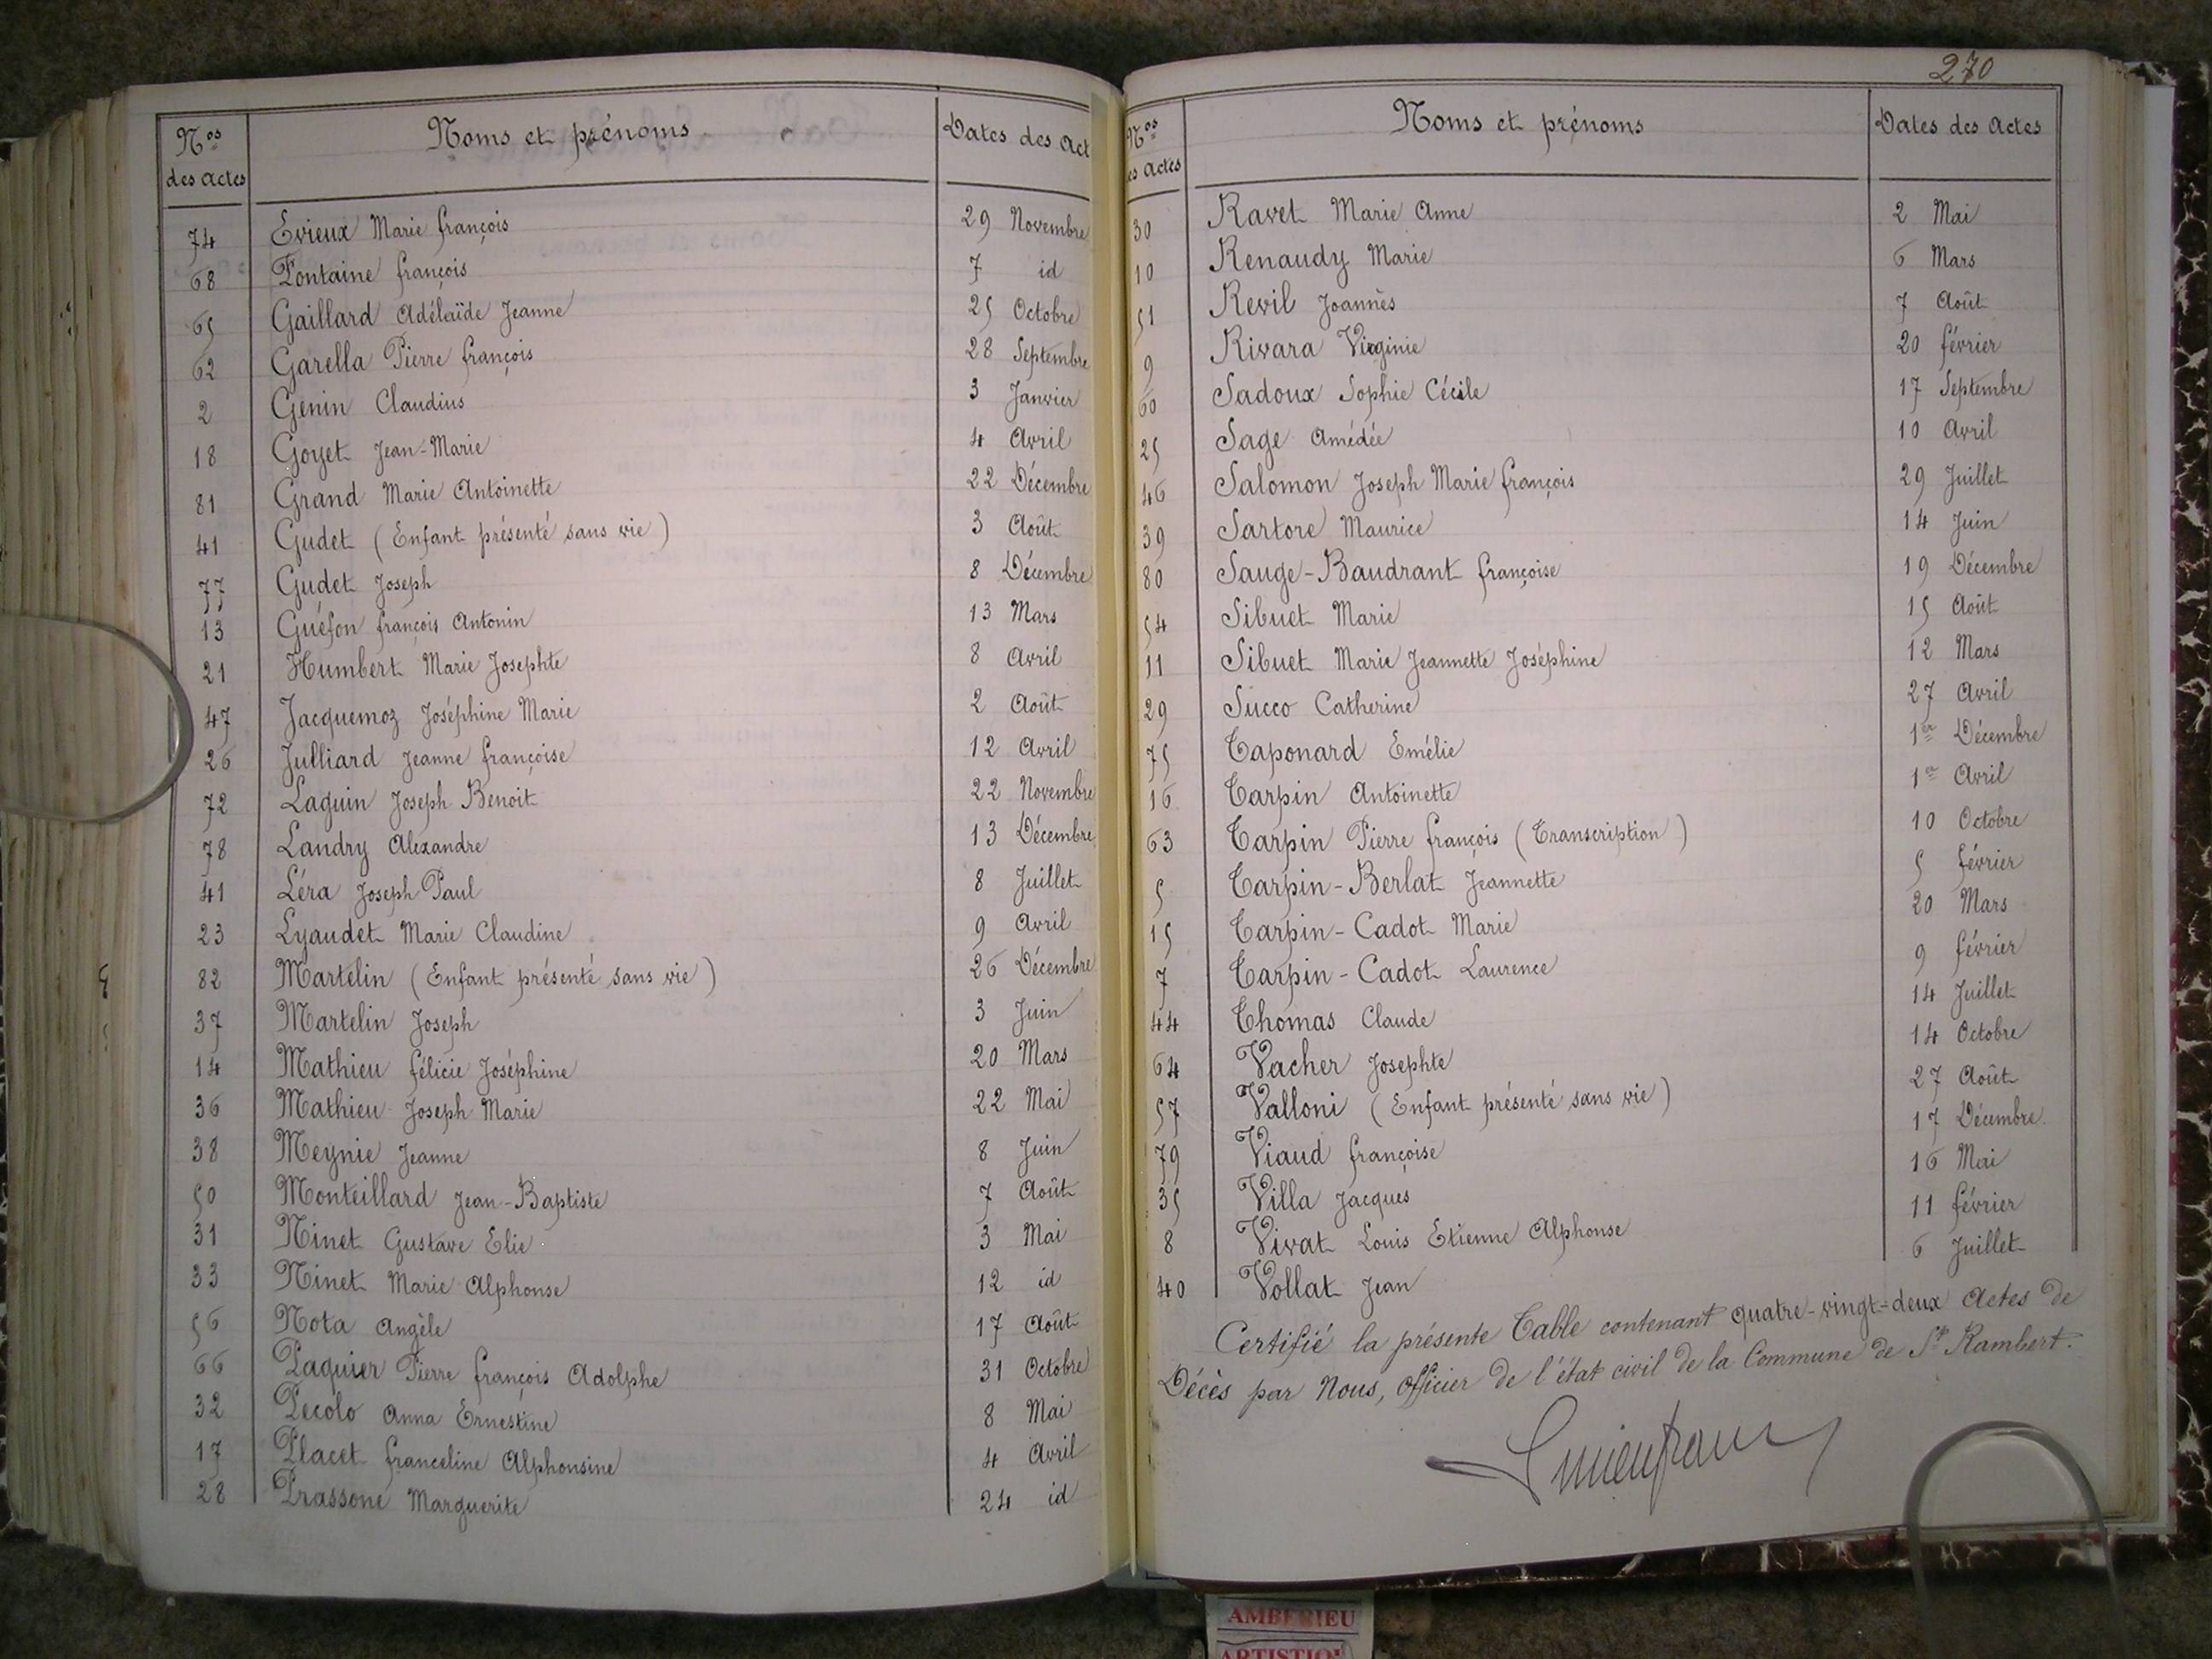 Nos des actes Noms et prénoms Dates des Act
74 Evieux Marie françois 29 Novembre
68 Fontaine françois 7 id
65 Gaillard Adélaïde Jeanne 25 Octobre
62 Garella Pierre françois 28 Septembre
2 Genin Claudius 3 Janvier
18 Goyet Jean-Marie 4 Avril
81 Grand Marie Antoinette 22 Décembre
41 Gudet (Enfant présenté sans vie) 3 Août
77 Gudet Joseph 8 Décembre
13 Guéfon françois Antonin 13 Mars
21 Humbert Marie Josephte 8 Avril
47 Jacquemoz Joséphine Marie 2 Août
26 Julliard Jeanne françoise 12 Avril
72 Laguin Joseph Benoit 22 Novembre
78 Landry Alexandre 13 Décembre
41 Léra Joseph Paul 8 Juillet
23 Lyaudet Marie Claudine 9 Avril
82 Martelin (Enfant présenté sans vie) 26 Décembre
37 Martelin Joseph 3 Juin
14 Mathieu félicie Joséphine 20 Mars
36 Mathieu Joseph Marie 22 Mai
38 Meynie Jeanne 8 Juin
50 Monteillard Jean-Baptiste 7 Août
31 Ninet Gustave Elie 3 Mai
33 Ninet Marie Alphonse 12 id
56 Nota Angèle 17 Août
66 Paquier Pierre françois Adolphe 31 Octobre
32 Pecolo Anna Ernestine 8 Mai
17 Placet franceline Alphonsine 4 Avril
28 Prassone Marguerite 24 id
270
Nos es actes Noms et prénoms Dates des Actes
30 Ravet Marie Anne 2 Mai
10 Renaudy Marie 6 Mars
51 Revil Joannès 7 Août
9 Rivara Virginie 20 février
60 Sadoux Sophie Cécile 17 Septembre
25 Sage Amédée 10 Avril
46 Salomon Joseph Marie françois 29 Juillet
39 Sartore Maurice 14 Juin
80 Sauge-Baudrant françoise 19 Décembre
54 Sibuet Marie 15 Août
11 Sibuet Marie Jeannette Joséphine 12 Mars
29 Succo Catherine 27 Avril
75 Taponard Emélie 1er Décembre
16 Tarpin Antoinette 1er Avril
63 Tarpin Pierre françois (Transcription) 10 Octobre
5 Tarpin-Berlat Jeannette 5 février
15 Tarpin-Cadot Marie 20 Mars
7 Tarpin-Cadot Laurence 9 février
44 Thomas Claude 14 Juillet
64 Vacher Josephte 14 Octobre
57 Valloni (Enfant présenté sans vie) 27 Août
79 Viaud françoise 17 Décembre
35 Villa Jacques 16 Mai
8 Vivat Louis Etienne Alphonse 11 février
40 Vollat Jean 6 Juillet
Certifié la présente Table contenant quatre-vingt-deux Actes de
Décès par Nous, Officier de l'état civil de la Commune de St Rambert.
AMBERIEU